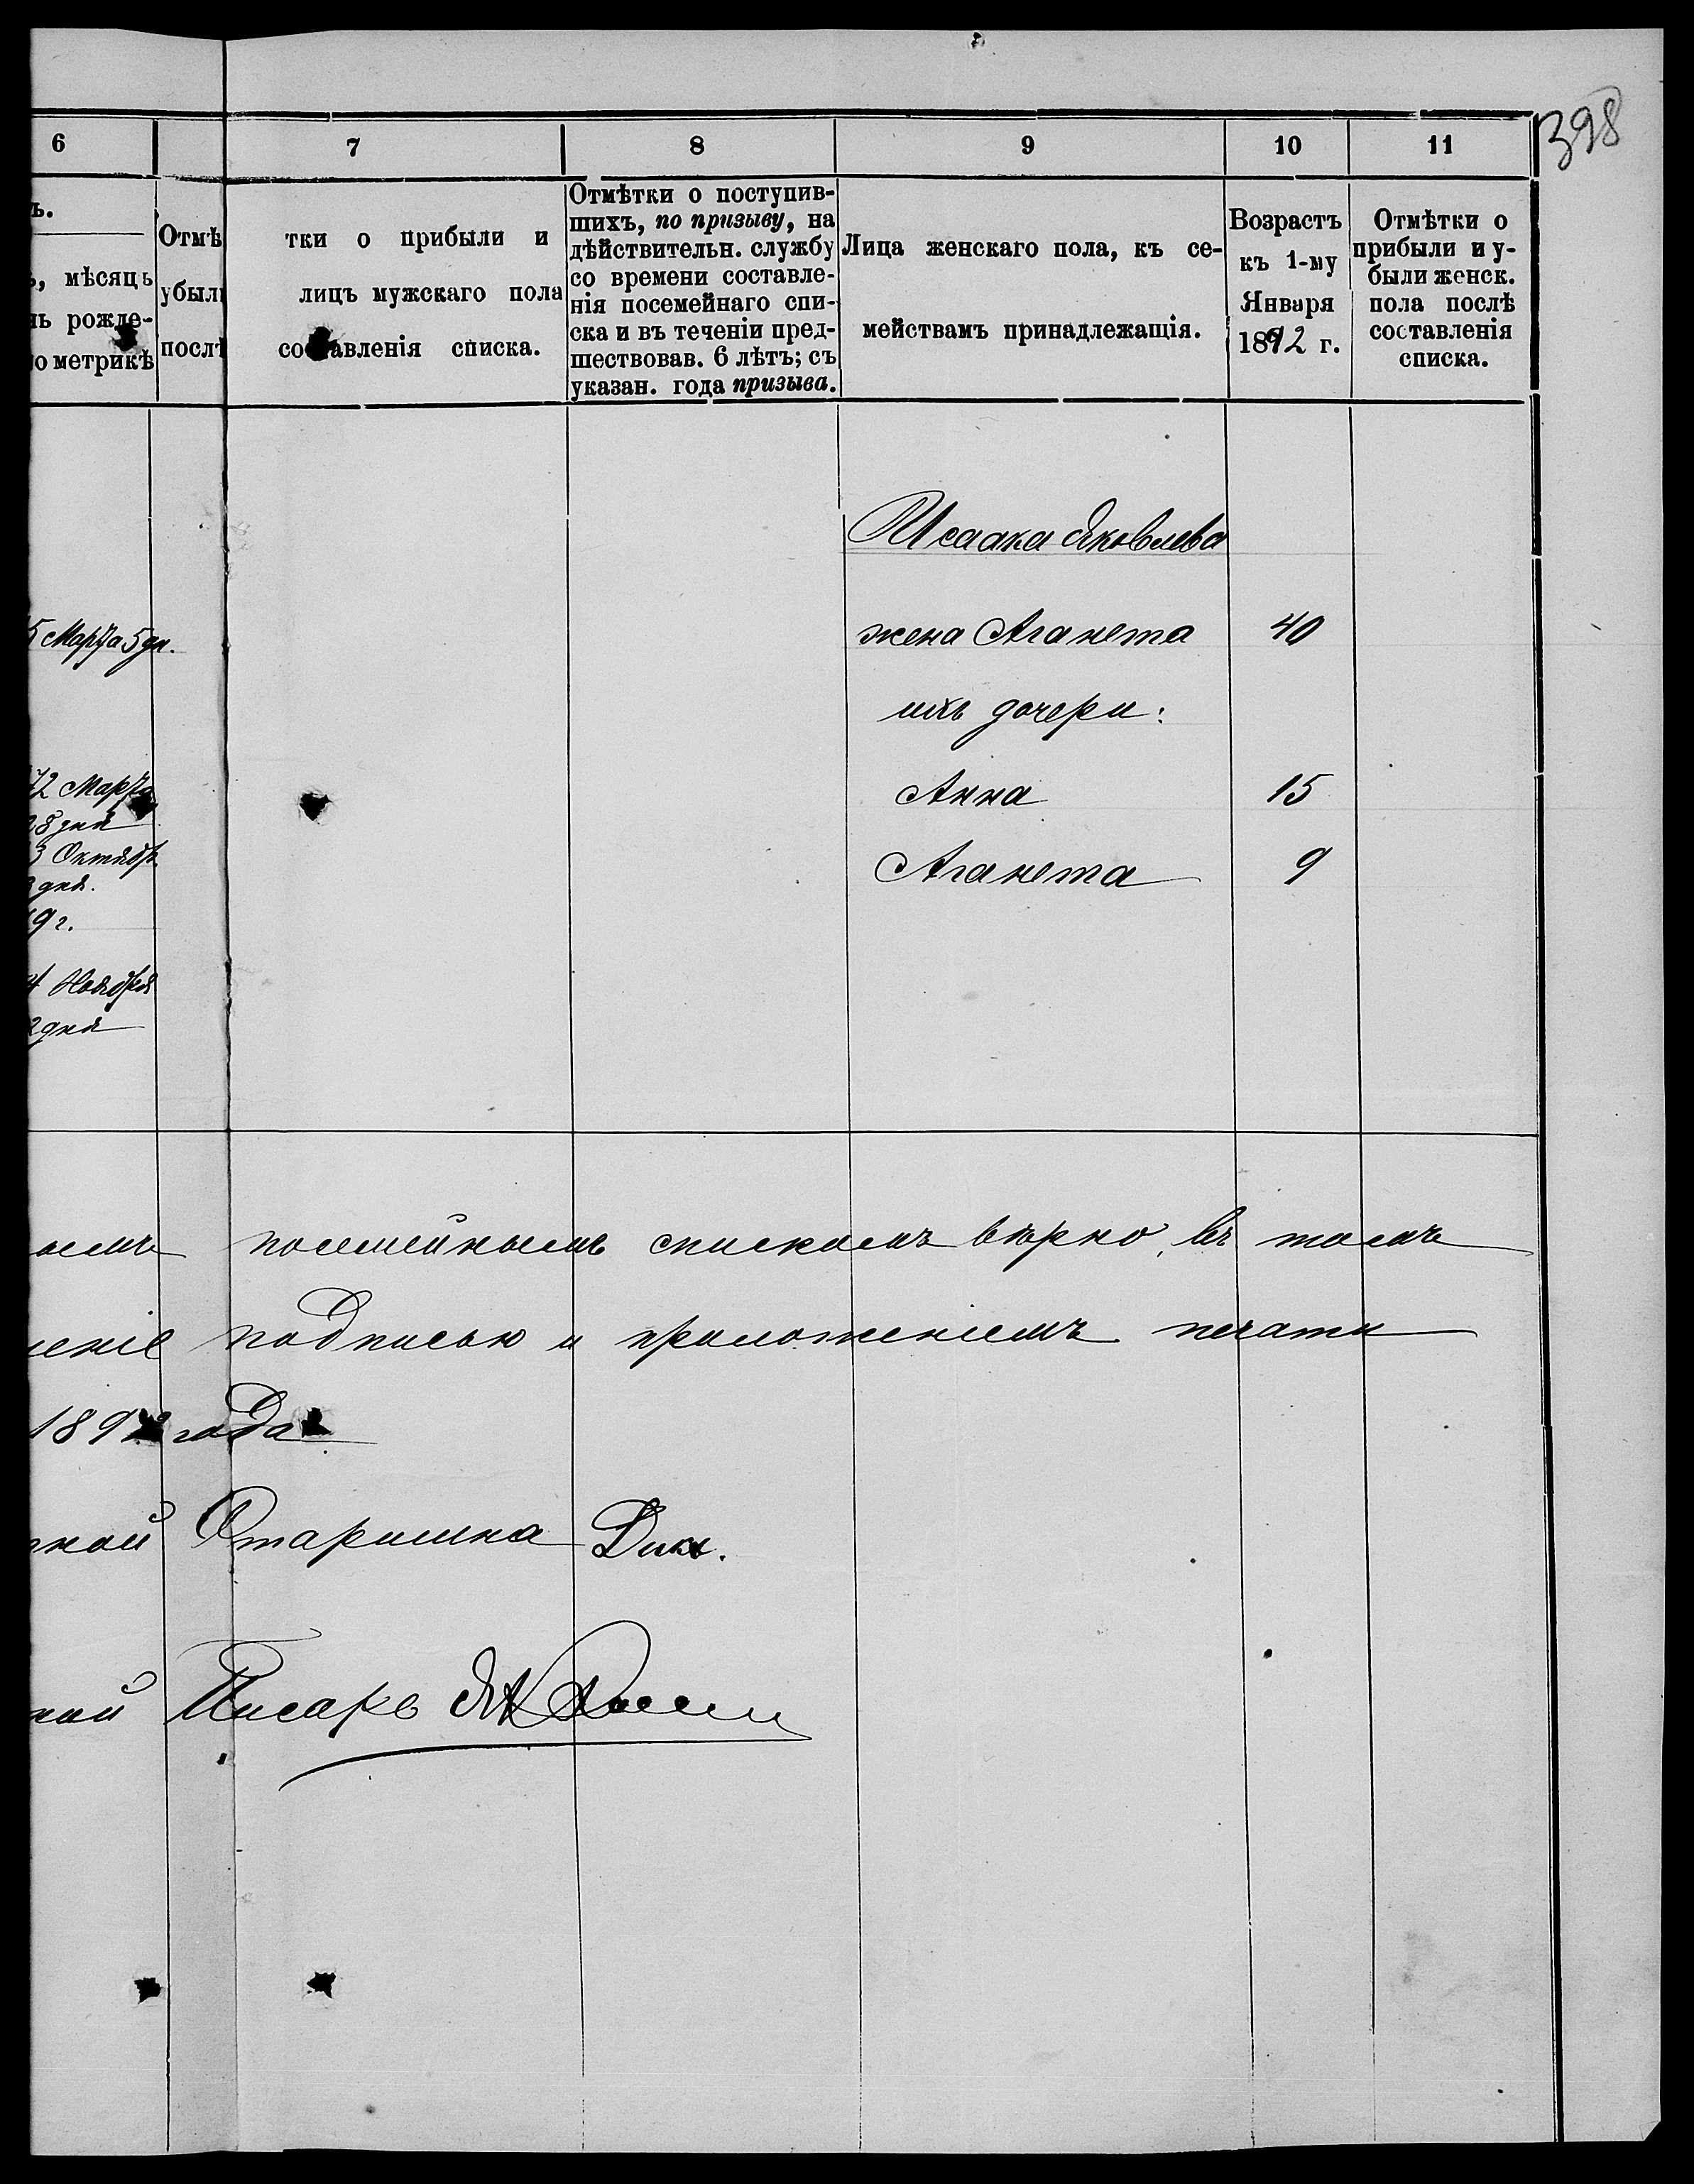 398
6 7 8 9 10 11
ъ.
, мѣсяцъ
нь рожде-
о метрикѣ
Отмѣтки о прибыли и
убыли лицъ мужскаго пола
послѣ составленія списка.
Отмѣтки о поступив-
шихъ, по призыву, на
дѣйствительн. службу
со времени составле-
нія посемейнаго спи-
ска и въ теченіи пред-
шествовав. 6 лѣтъ; съ
указан. года призыва.
Лица женскаго пола, къ се-
мействамъ принадлежащія.
Возрастъ
къ 1-му
Января
1892 г.
Отмѣтки о
прибыли и у-
были женск.
пола послѣ
составленія
списка.
Исаака Яковлева
5 Марта 5 дн.
жена Аганета 40
ихъ дочери:
72 Марта
28 дня
Анна 15
3 Октября
3 дня.
Аганета 9
9 г.
4 Ноября
2 дня
посемейнымъ спискомъ вѣрно, въ томъ
подписью и приложеніемъ печати
1892 года
Старшина Дикъ.
Писарь